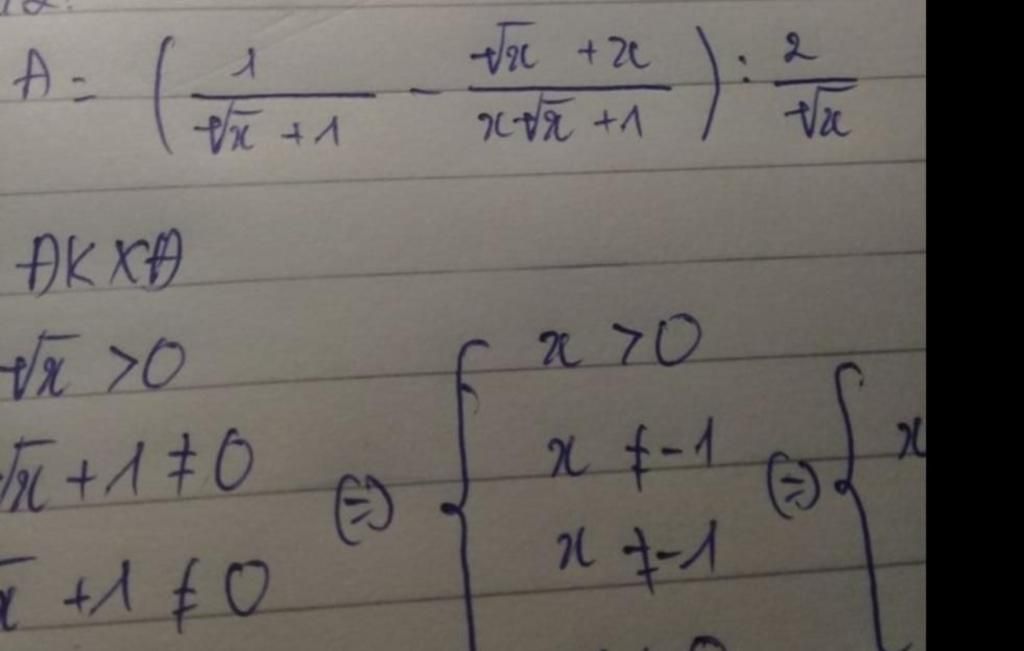 A = ( 1 / (√x + 1) - (√x + x) / (x√x + 1) ) : 2 / √x
ĐKXĐ
√x > 0
√x + 1 ≠ 0
x + 1 ≠ 0
⇔ { x > 0
x ≠ -1
x ≠ -1
⇔ { x